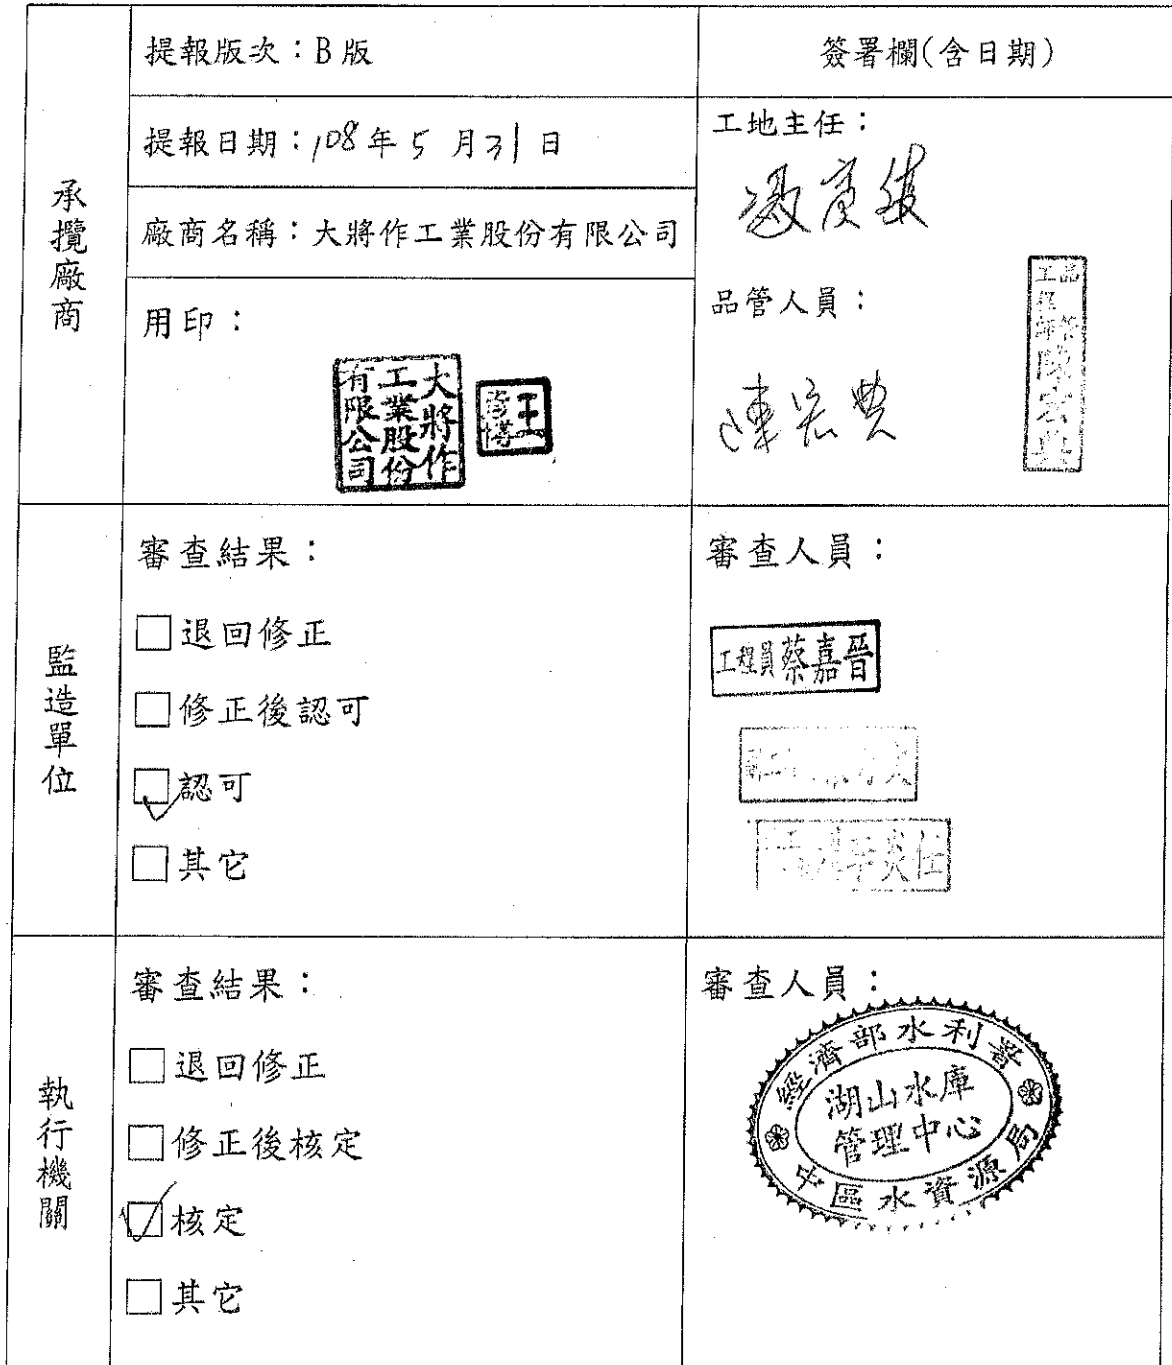 承攬廠商
提報版次：B版
簽署欄(含日期)
提報日期：108年5月31日
廠商名稱：大將作工業股份有限公司
用印：
大將作
工業股份
有限公司
王
工地主任：
品管人員：
品管
工程師陳宏典
監造單位
審查結果：
□退回修正
□修正後認可
☑認可
□其它
審查人員：
工程員蔡嘉晉
執行機關
審查結果：
□退回修正
□修正後核定
☑核定
□其它
審查人員：
經濟部水利署
湖山水庫
管理中心
中區水資源局